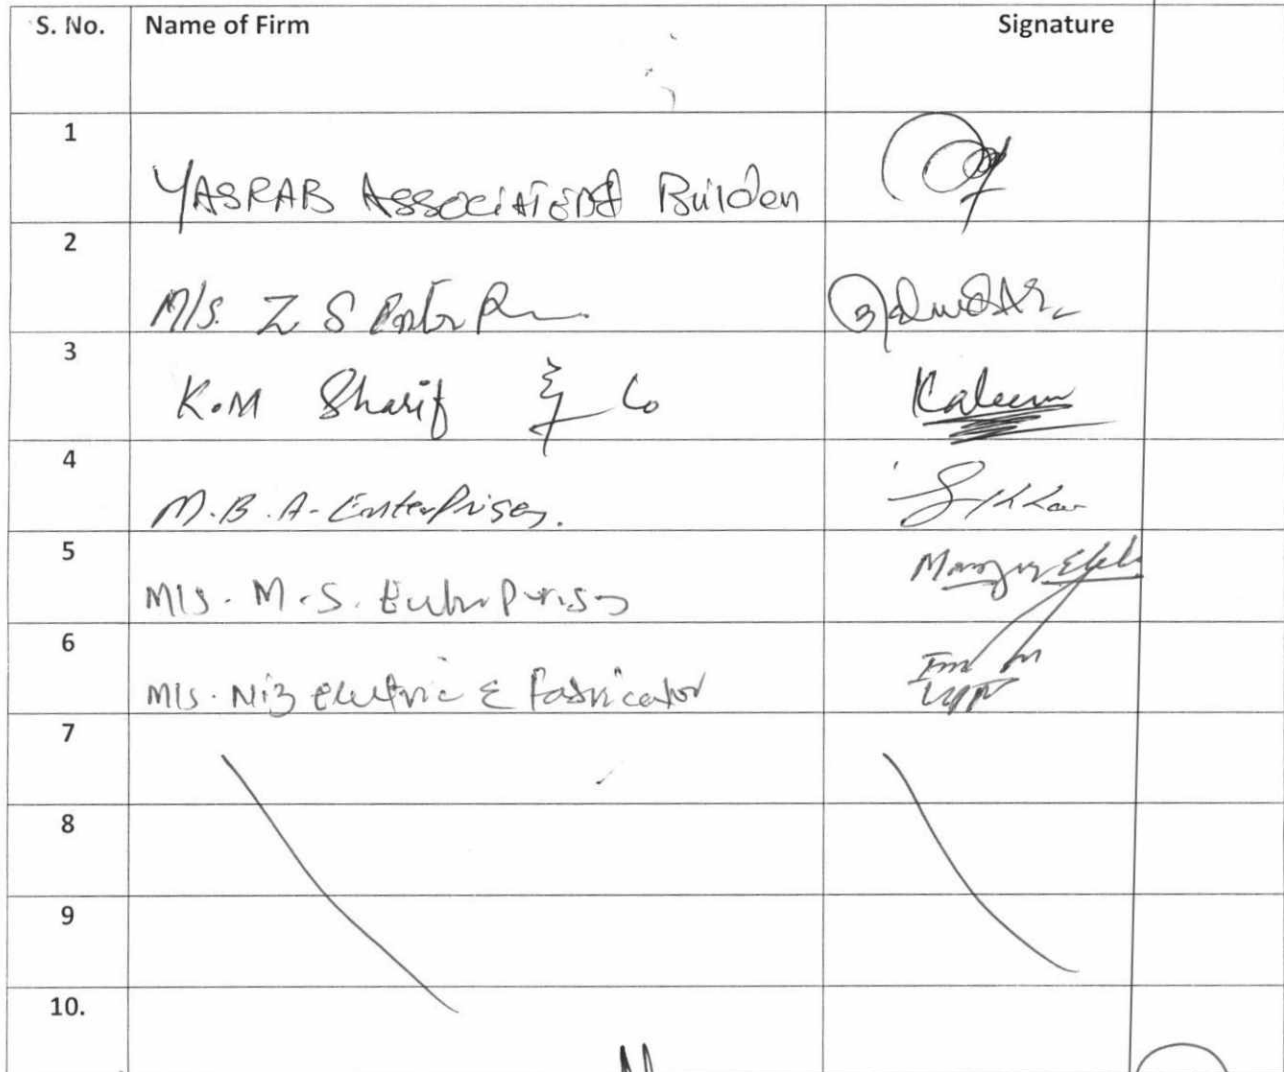 S. No. Name of Firm Signature
1
YASRAB Associations Builden
2
M/s. Z S
3
K.M Sharif & Co Kaleem
4
M.B.A-Enterprises.
5
M/s. M.S. Enterprises
6
M/s. Niz Electric & Fabricator
7
8
9
10.